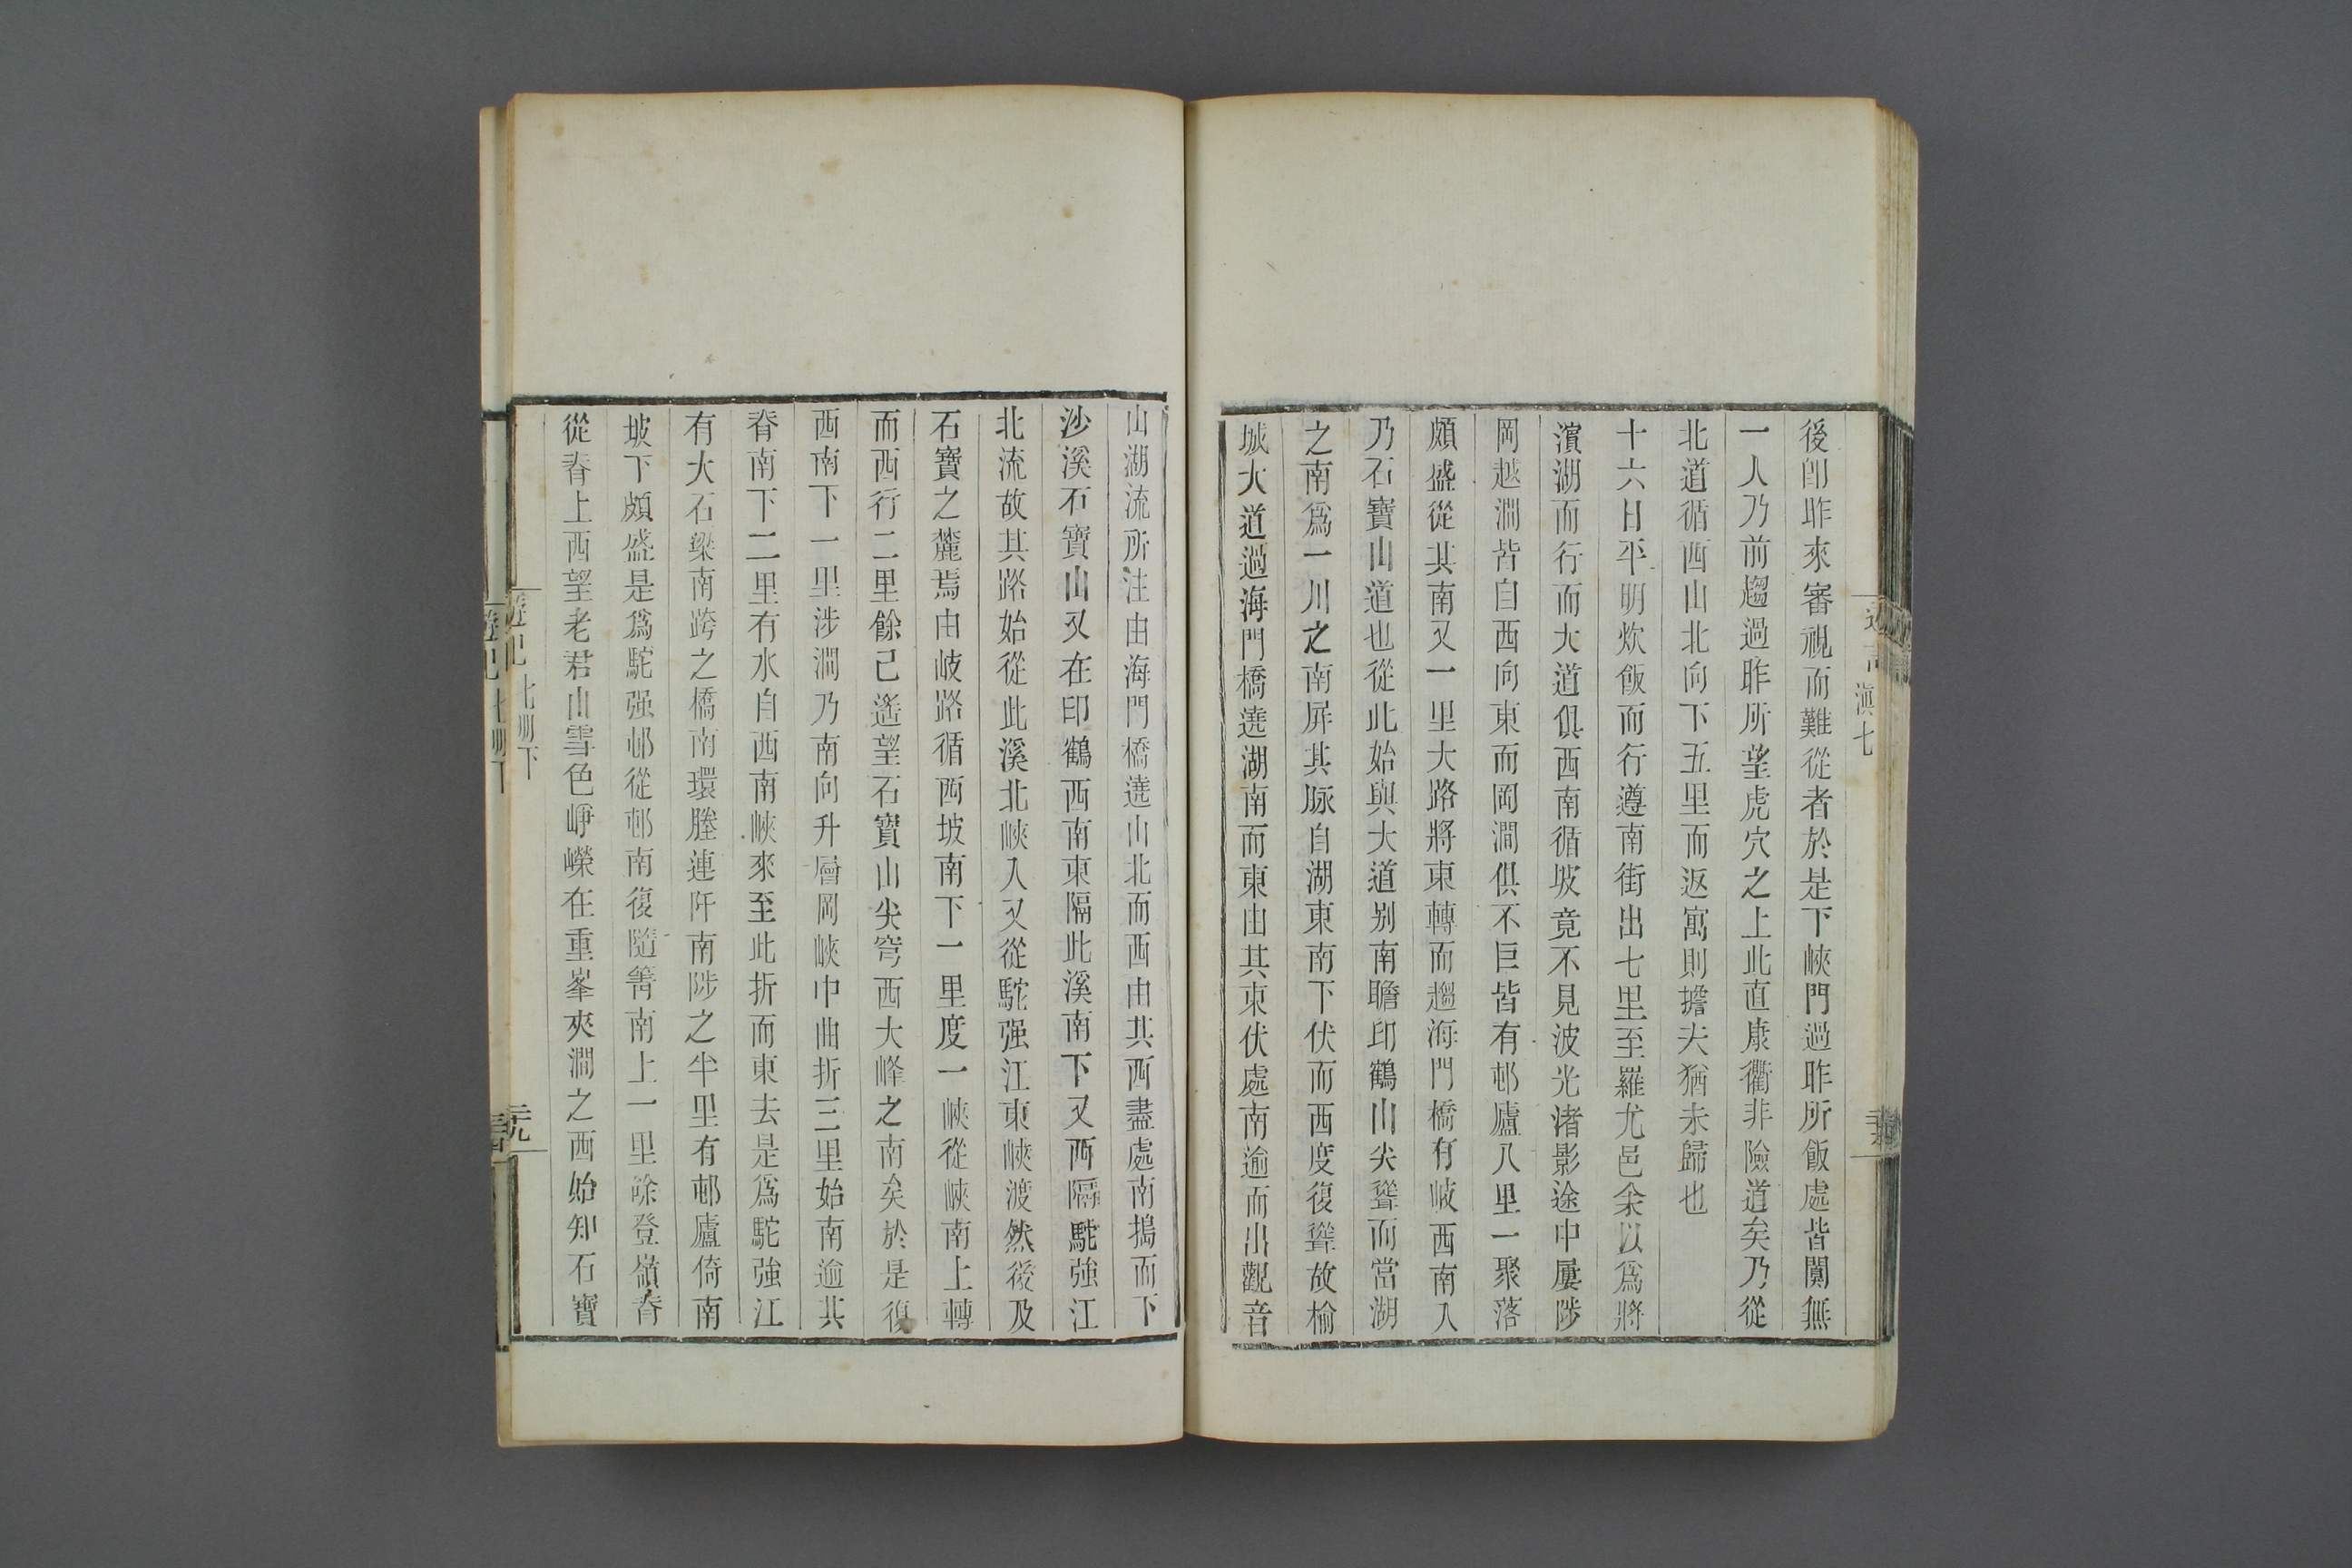 滇七
後卽昨來審視而難從者於是下峽門過昨所飯處皆闃無
一人乃前趨過昨所望虎穴之上此直康衢非險道矣乃從
北道循西山北向下五里而返寓則擔夫猶未歸也
十六日平明炊飯而行遵南街出七里至羅尤邑余以爲將
濱湖而行而大道俱西南循坡竟不見波光渚影途中屢陟
岡越澗皆自西向東而岡澗俱不巨皆有邨廬八里一聚落
頗盛從其南又一里大路將東轉而趨海門橋有岐西南入
乃石寶山道也從此始與大道别南瞻印鶴山尖聳而當湖
之南爲一川之南屏其脉自湖東南下伏而西度復聳故榆
城大道過海門橋遶湖南而東由其東伏處南逾而出觀音
山湖流所注由海門橋遶山北而西由其西盡處南搗而下
沙溪石寶山又在印鶴西南東隔此溪南下又西隔駝強江
北流故其路始從此溪北峽入又從駝强江東峽渡然後及
石寶之麓焉由岐路循西坡南下一里度一峽從峽南上轉
而西行二里餘已遙望石寶山尖穹西大峰之南矣於是復
西南下一里涉澗乃南向升層岡峽中曲折三里始南逾其
脊南下二里有水自西南峽來至此折而東去是爲駝強江
有大石梁南跨之橋南環塍連阡南陟之半里有邨廬倚南
坡下頗盛是爲駝强邨從邨南復隨箐南上一里餘登嶺脊
從脊上西望老君山雪色崢嶸在重峯夾澗之西始知石寶
遊記 七册下
二十九